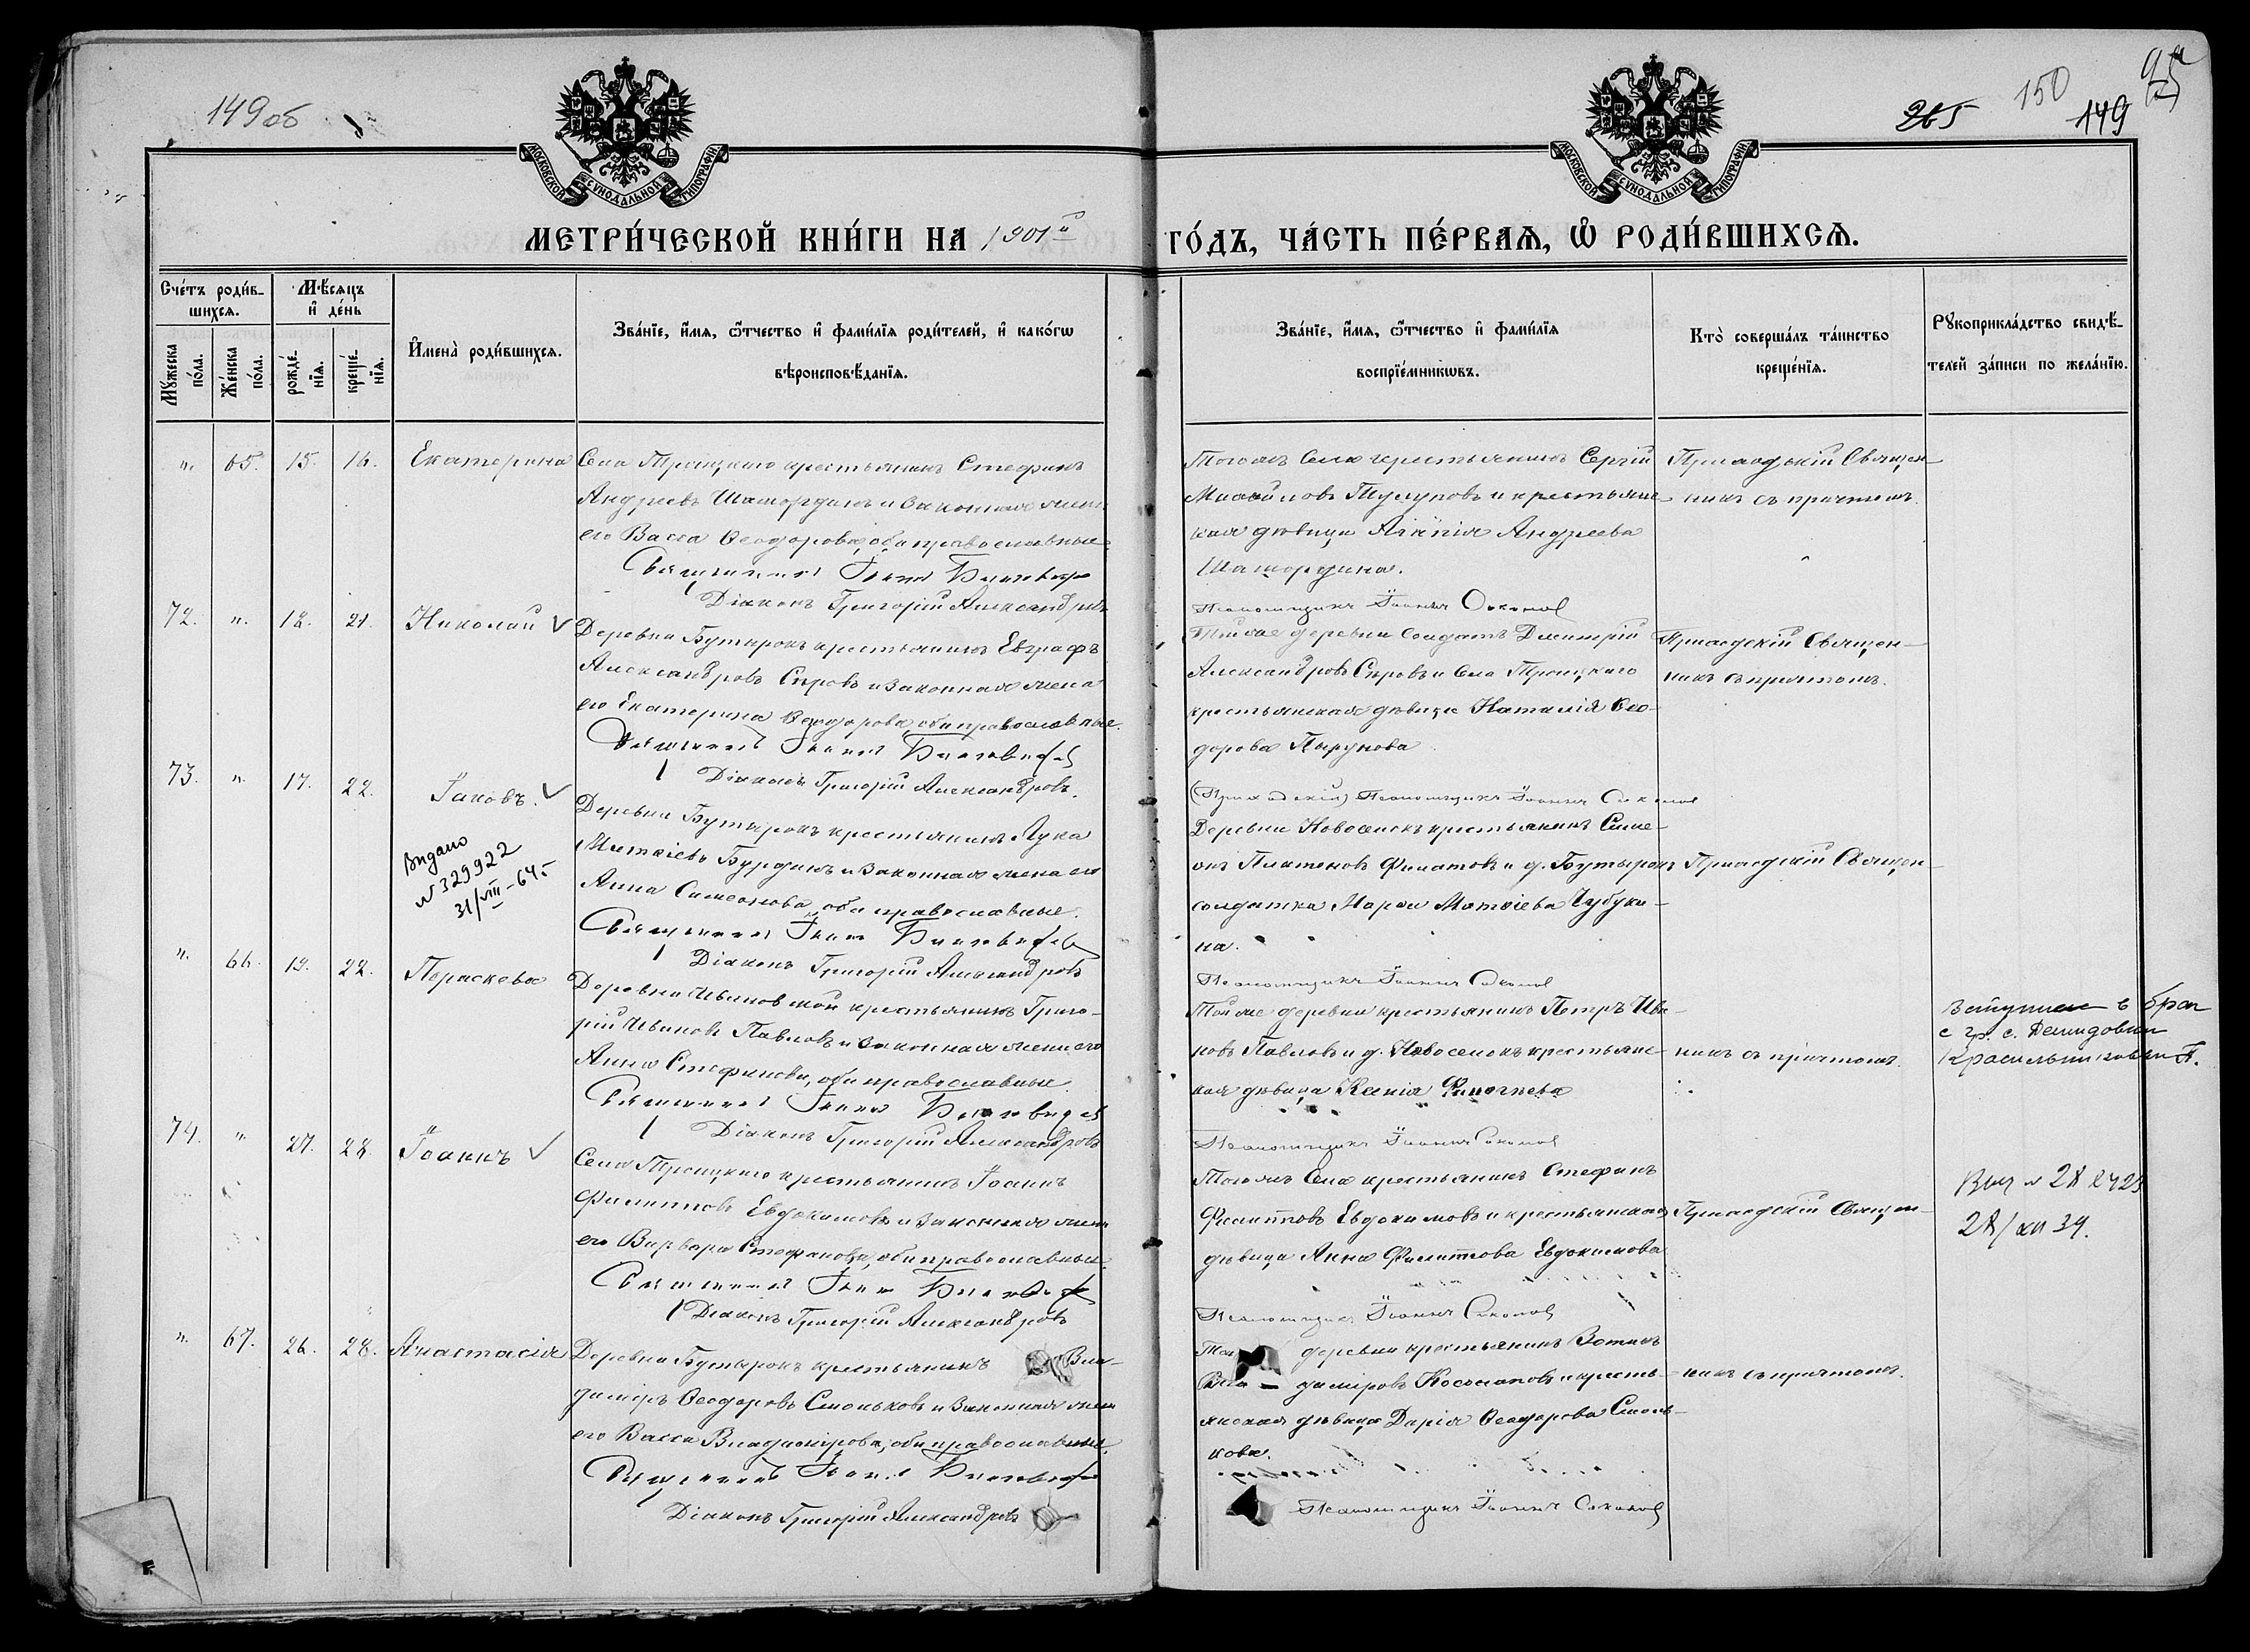 149об
265
150
149
МОСКОВСКОЙ СѴНОДАЛЬНОЙ ТИПОГРАФІИ
МОСКОВСКОЙ СѴНОДАЛЬНОЙ ТИПОГРАФІИ
МЕТРИ́ЧЕСКОЙ КНИ́ГИ НА 1901й ГО́ДЪ, ЧА́СТЬ ПЕ́РВАѦ, Ѡ РОДИ́ВШИХСѦ.
Сче́тъ роди́в-
шихсѧ.
Мꙋ́жеска по́ла.
Же́нска по́ла.
Мѣ́сѧцъ и҆ де́нь
рожде́-
нїѧ.
креще́-
нїѧ.
И҆мена̀ роди́вшихсѧ.
Зва́нїе, и҆́мѧ, ѻ҆́тчество и҆ фами́лїѧ роди́телей, и҆ како́гѡ
вѣроисповѣ́данїѧ.
Зва́нїе, и҆́мѧ, ѻ҆́тчество и҆ фами́лїѧ
воспрїе́мникѡвъ.
Кто̀ соверша́лъ та́инство
креще́нїѧ.
Рꙋкоприкла́дство свидѣ́-
телей за́писи по жела́нїю.
". 65. 15. 16. Екатерина
Села Троицкаго крестьянинъ Стефанъ
Андреевъ Шамординъ и законная жена
его Васса Ѳеодорова, оба православные.
Священникъ Іоаннъ
Діаконъ Григорій Александровъ
Тогожъ Села крестьянинъ Сергій
Михайловъ Тулуповъ и крестьянс-
кая дѣвица Андреева
Шамордина.
Псаломщикъ Іоаннъ Соколовъ
Приходскій Священ-
никъ съ причтомъ.
72. ". 18. 21. Николай
Деревни Бутырокъ крестьянинъ Евграфъ
Александровъ Сѣровъ и законная жена
его Екатерина Ѳеодорова, оба православные.
Священникъ Іоаннъ
Діаконъ Григорій Александровъ.
Той же деревни солдатъ Димитрій
Александровъ Сѣровъ и Села Троицкаго
крестьянская дѣвица Наталія Ѳео-
дорова
(Приходскій) Псаломщикъ Іоаннъ Соколовъ
Приходскій Священ-
никъ съ причтомъ.
73. ". 17. 22. Іаковъ.
Видано
№ 329922
31/VIII-64г
Деревни Бутырокъ крестьянинъ Лука
Матѳіевъ Бурдинъ и законная жена его
Анна Симеонова, оба православные.
Священникъ Іоаннъ
Діаконъ Григорій Александровъ
Деревни Новоселокъ крестьянинъ Симе-
онъ Платоновъ Филатовъ и д. Бутырокъ
солдатка Марѳа Матѳіева Чубуки-
на.
Псаломщикъ Іоаннъ Соколовъ
Приходскій Священ-
". 66. 19. 22. Параскева
Деревни Ивановской крестьянинъ Григо-
рій Ивановъ Павловъ и законная жена его
Анна Стефанова, оба православные.
Священникъ Іоаннъ
Діаконъ Григорій Александровъ
Той же деревни крестьянинъ Петръ Ива-
новъ Павловъ и д. Новоселокъ крестьянс-
кая дѣвица Ксенія
Псаломщикъ Іоаннъ Соколовъ
никъ съ причтомъ.
Вступила в брак
с гр. с.
74. " 27. 28. Іоаннъ
Села Троицкаго крестьянинъ Іоаннъ
Филипповъ Евдокимовъ и законная жена
его Варвара Стефанова, оба православные.
Священникъ Іоаннъ
Діаконъ Григорій Александровъ
Тогожъ Села крестьянинъ Стефанъ
Филипповъ Евдокимовъ и крестьянская
дѣвица Анна Филиппова Евдокимова
Псаломщикъ Іоаннъ Соколовъ
Приходскій Священ-
". 67. 26. 28. Анастасія
Деревни Бутырокъ крестьянинъ Вла-
диміръ Ѳеодоровъ Смольковъ и законная жена
его Васса Владимірова, оба православные.
Священникъ Іоаннъ
Діаконъ Григорій Александровъ
деревни крестьянинъ
диміровъ и кресть-
янская дѣвица Дарія Ѳеодорова Смоль-
кова.
Псаломщикъ Іоаннъ Соколовъ
никъ съ причтомъ.